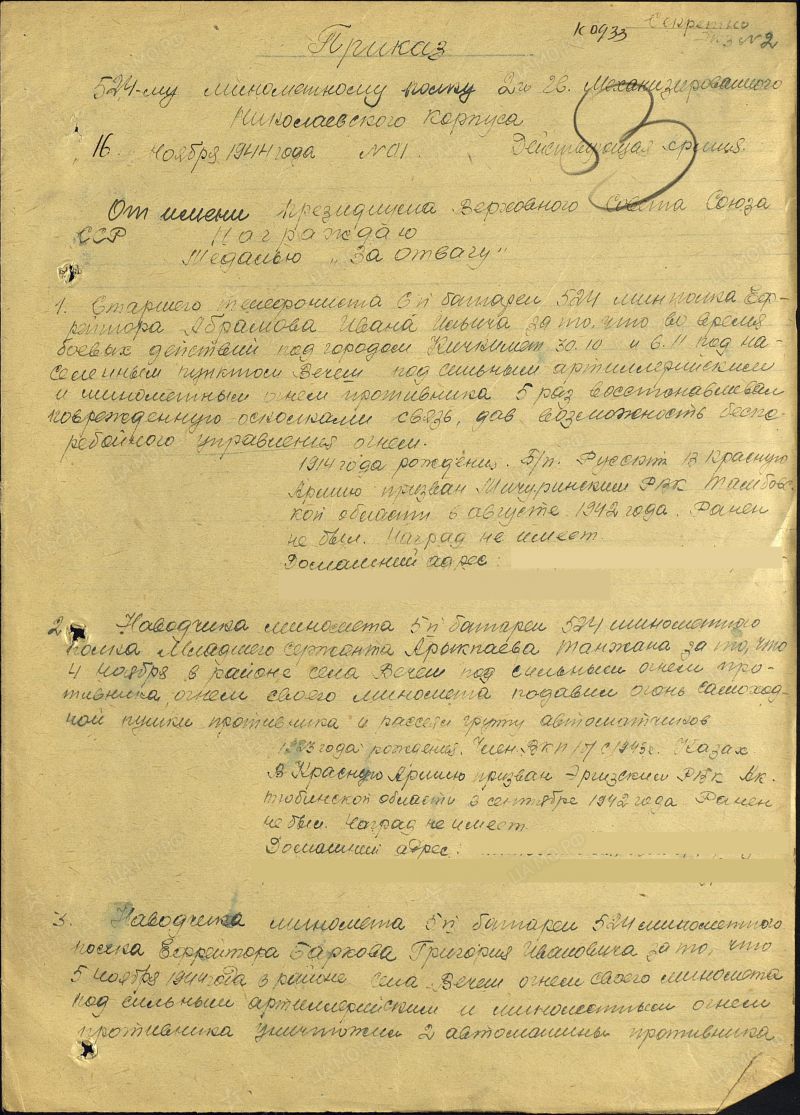 К 0933 Секретно
Экз № 2
Приказ
524-му минометному полку 2го Гв. Механизированного
Николаевского корпуса
16 ноября 1944 года №01. Действующая армия.
От имени Президиума Верховного Совета Союза
ССР Награждаю
Медалью „За отвагу"
1. Старшего телефониста 6й батареи 524 минполка Еф-
рейтора Абрамова Ивана Ильича за то, что во время
боевых действий под городом Кичкимет 30.10 и 6.11 под на-
селенным пунктом Вечеш под сильным артиллерийским
и минометным огнем противника 5 раз восстанавливал
поврежденную осколками связь, дав возможность беспе-
ребойного управления огнем.
1914 года рождения. Б/п. Русский В Красную
Армию призван Мичуринским РВК Тамбовс-
кой области в августе 1942 года. Ранен
не был. Наград не имеет.
Домашний адрес:
2 Наводчика миномета 5й батареи 524 минометного
полка Младшего сержанта Арыкпаева Танжана за то, что
4 ноября в районе села Вечеш под сильным огнем про-
тивника, огнем своего миномета подавил огонь самоход-
ной пушки противника и рассеял группу автоматчиков
1923 года рождения. Член ВКП/б/ с 1943г. Казах
В Красную Армию призван Эргизским РВК Ак-
тюбинской области 3 сентября 1942 года Ранен
не был. Наград не имеет
Домашний адрес:
3. Наводчика миномета 5й батареи 524 минометного
полка Ефрейтора Баркова Григория Ивановича за то, что
5 ноября 1944 года в районе села Вечеш огнем своего миномета
под сильным артиллерийским и минометным огнем
противника уничтожил 2 автомашины противника